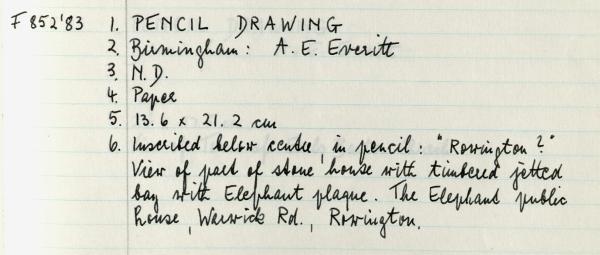 F 852'83 1. PENCIL DRAWING
2. Birmingham: A. E. Everitt
3. N.D.
4. Paper
5. 13.6 x 21.2 cm
6. Inscribed below centre, in pencil: "Rowington?"
View of part of stone house with timbered jetted
bay with Elephant plaque. The Elephant public
house, Warwick Rd., Rowington.